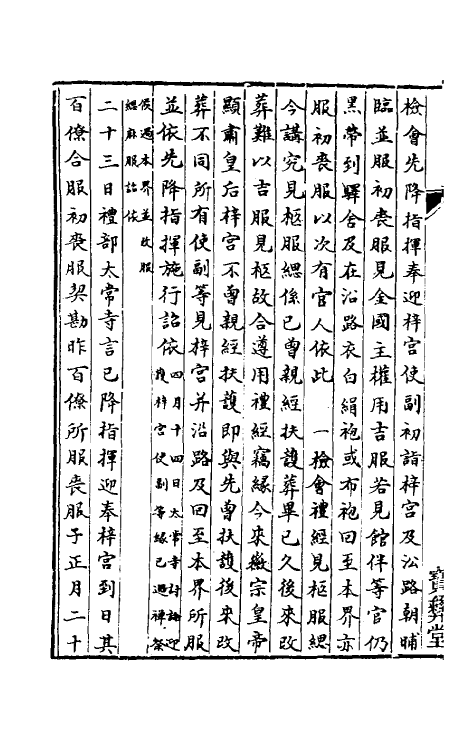 檢會先降指揮奉迎梓宮使副初詣梓宮及㳂路朝晡
臨並服初喪服見金國主權用吉服若見館伴等官仍
黑帶到驛舍及在沿路衣白絹袍或布袍回至本界亦
服初喪服以次有官人依此　一檢會禮經見柩服緦
今講究見柩服緦係已曾親經扶護葬畢已久後來改
葬難以吉服見柩故合遵用禮經竊緣今來徽宗皇帝
顯肅皇后梓宮不曾親經扶護即與先曾扶護後來改
葬不同所有使副等見梓宮并沿路及回至本界所服
並依先降指揮施行詔依四月十四日太常寺討論迎
護梓宮使副等緣已過禫祭
候過本界並改服
緦麻服詔依
二十三日禮部太常寺言已降指揮迎奉梓宮到日其
百僚合服初喪服契勘昨百僚所服喪服子正月二十
寶彝堂